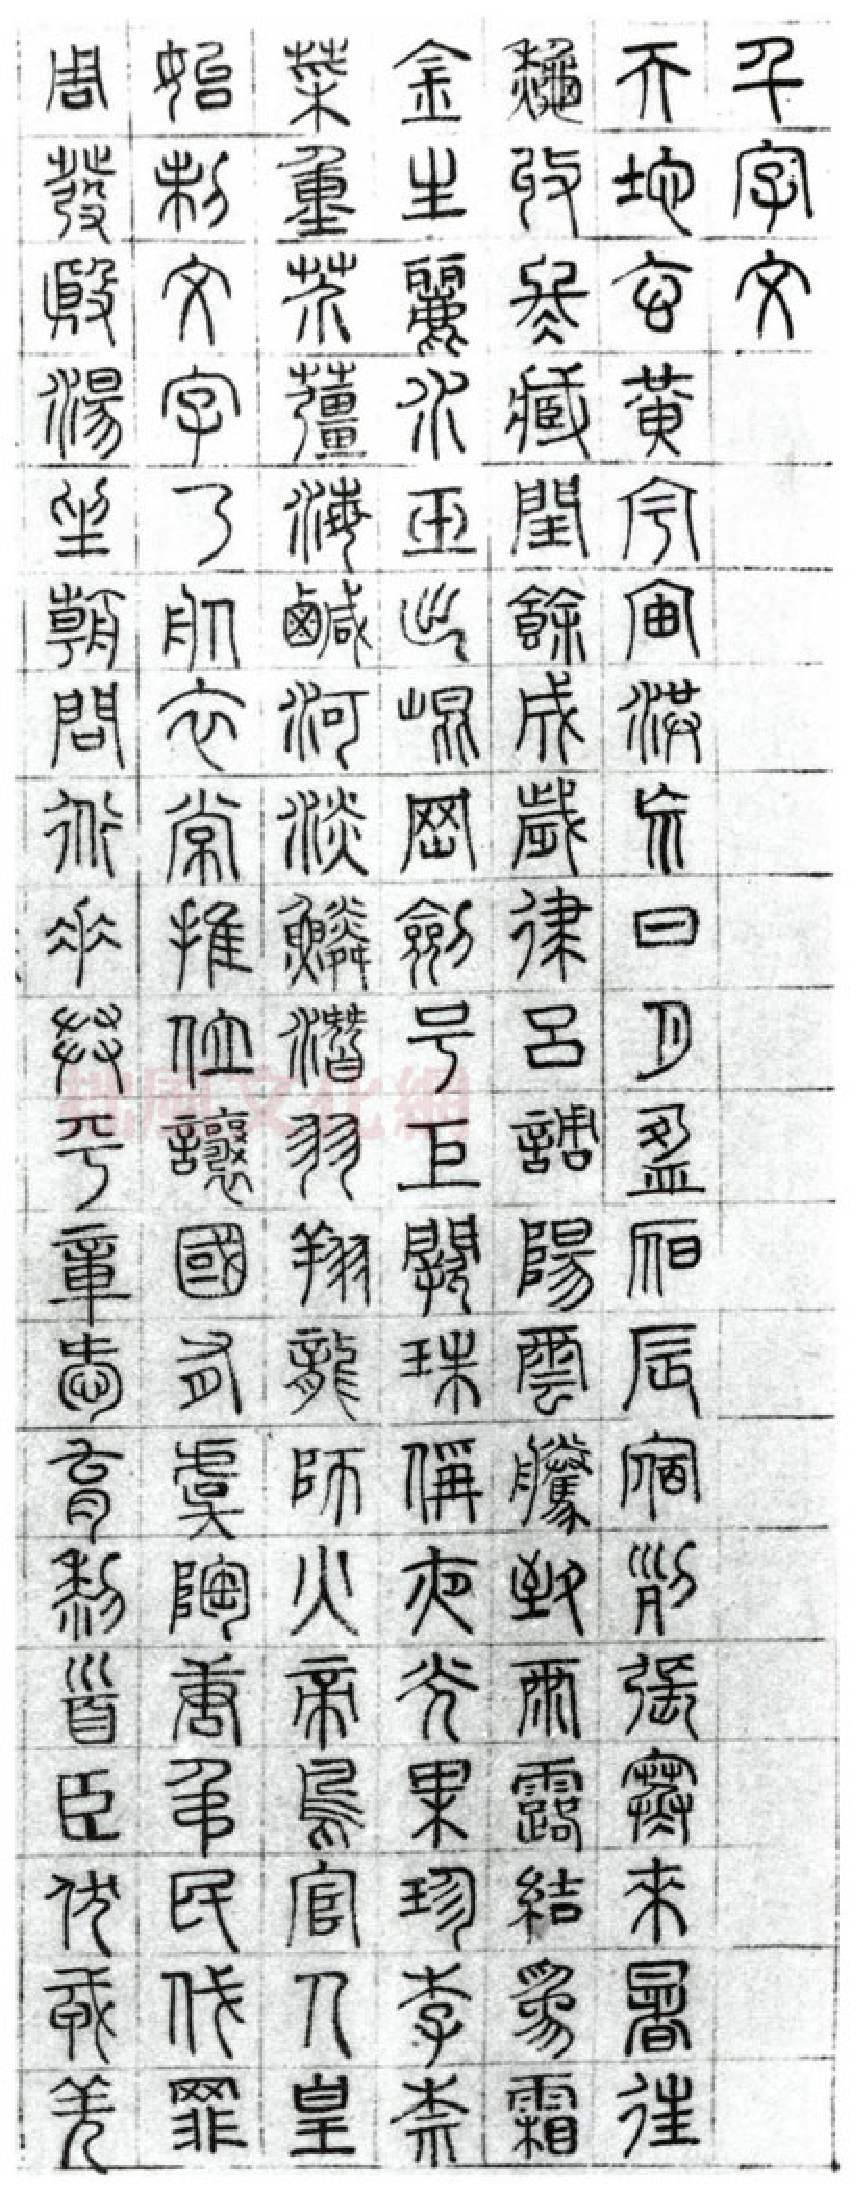 千字文
天地玄黃宇宙洪荒日月盈昃辰宿列張寒來暑往
秋收冬藏閏餘成歲律呂調陽雲騰致雨露結為霜
金生麗水玉出崐岡劍号巨闕珠稱夜光果珍李柰
菜重芥薑海鹹河淡鱗潛羽翔龍師火帝鳥官人皇
始制文字乃服衣常推位讓國有虞陶唐弔民伐罪
周發殷湯坐朝問道垂拱平章愛育黎首臣伏戎羌
風文化網